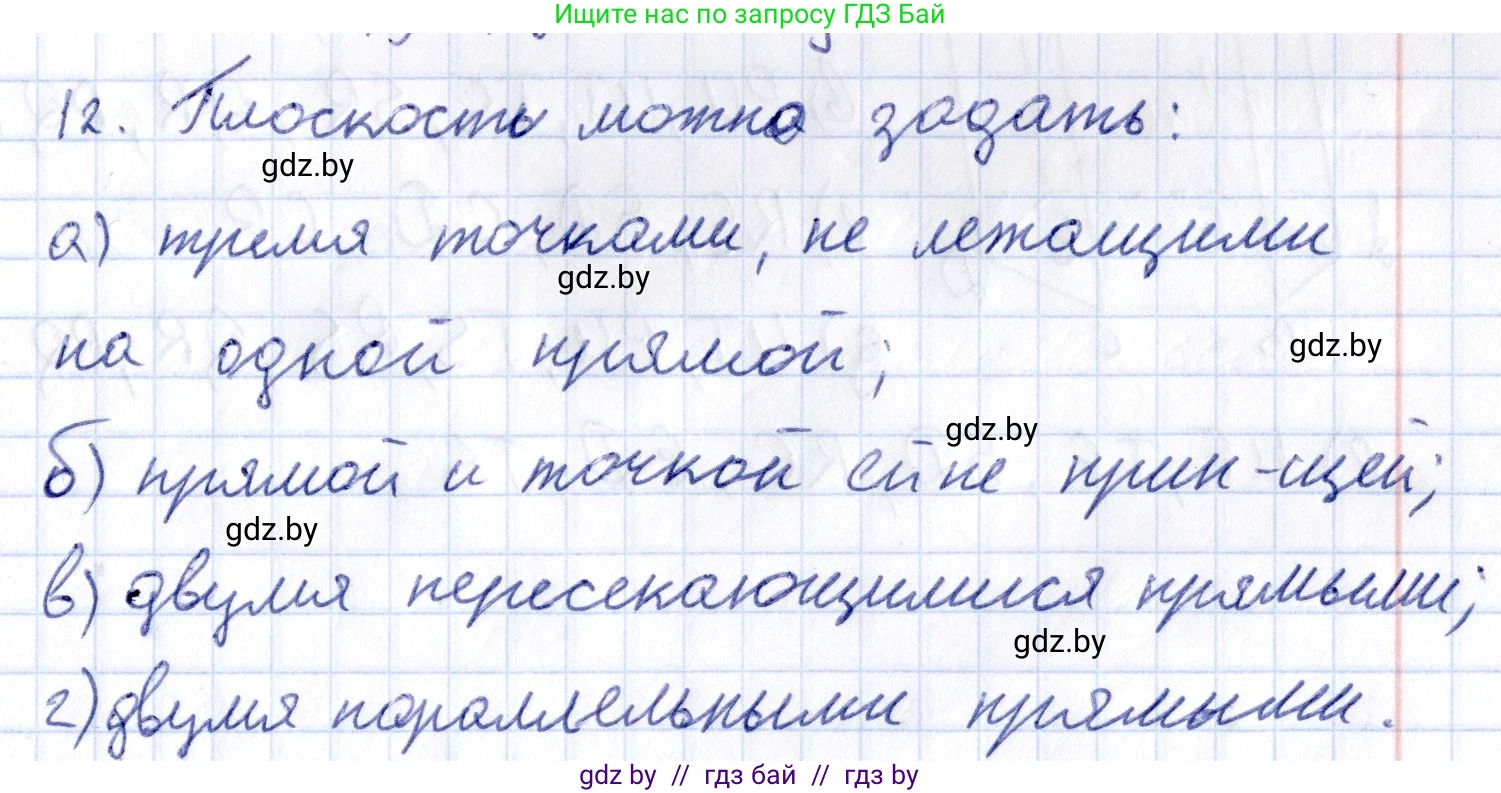 Ищите нас по запросу ГДЗ Бай
12. Плоскость можно задать:
gdz.by
а) тремя точками, не лежащими
gdz.by
на одной прямой;
gdz.by
gdz.by
б) прямой и точкой ей не прин-щей;
gdz.by
в) двумя пересекающимися прямыми;
gdz.by
г) двумя параллельными прямыми.
gdz by // гдз бай // гдз by